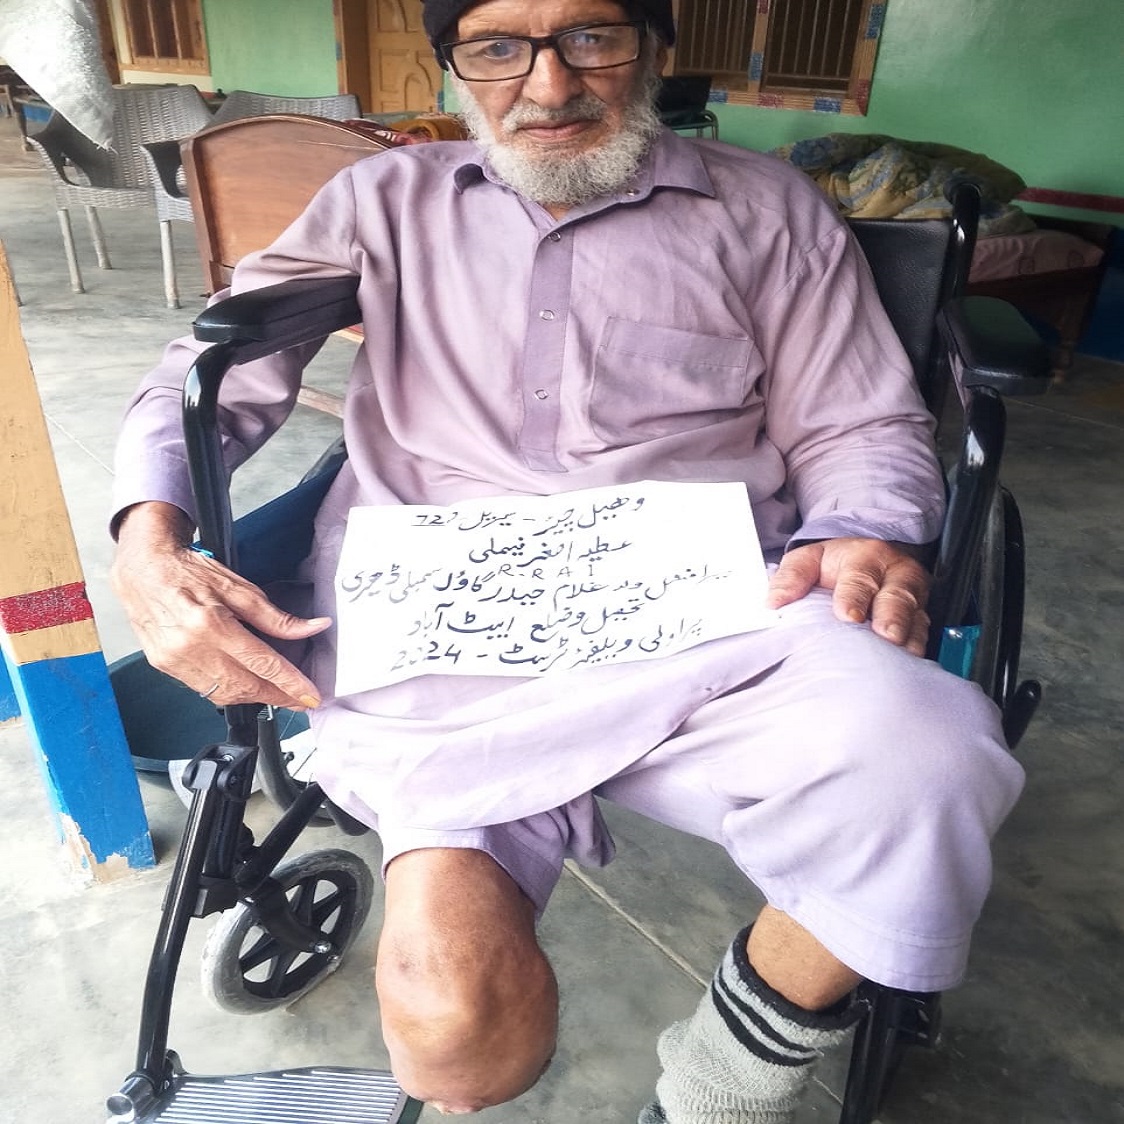 وھیل چیئر - سیریل 727
عطیہ اصغر فیملی
R.R A I
میر افضل ولد غلام حیدر گاؤں سمبلی ڈھیری
تحصیل و ضلع ایبٹ آباد
ویلیفئر ٹرسٹ - 2024